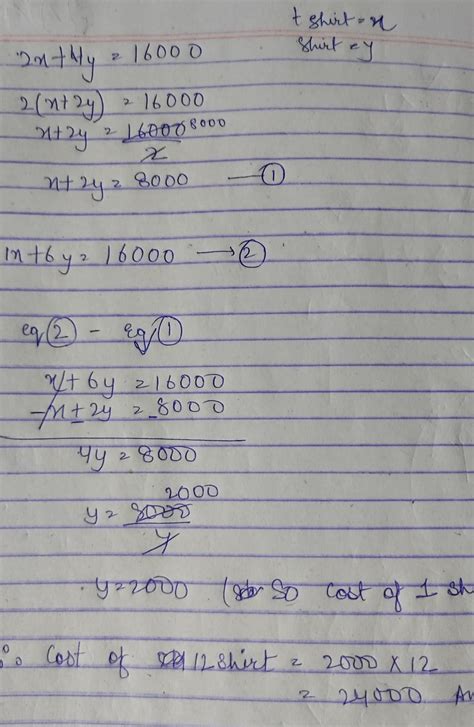 t shirt = x
shirt = y
2x+4y = 16000
2(x+2y) = 16000
x+2y = 16000 8000
2
x+2y = 8000 — ①
1x+6y = 16000 → ②
eq ② - eq ①
x+6y = 16000
-x+2y = -8000
4y = 8000
2000
y = 8000
4
y = 2000 ( So cost of 1 sh
∴ Cost of 12 shirt = 2000 × 12
= 24000 An